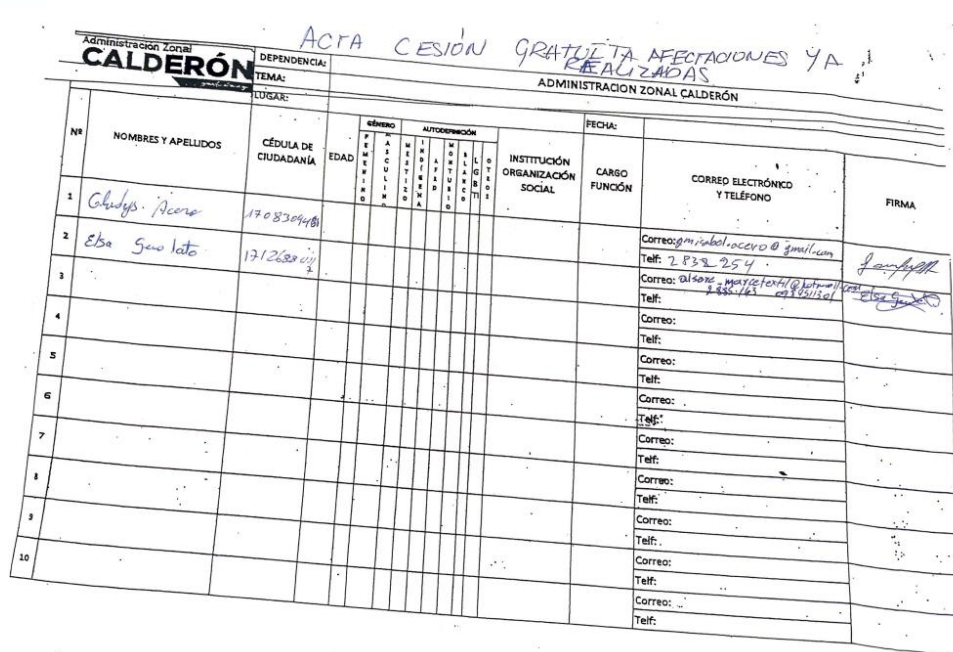 ACTA CESIÓN GRATUITA AFECTACIONES YA
REALIZADAS
Administración Zonal
CALDERÓN
DEPENDENCIA:
TEMA:
ADMINISTRACION ZONAL CALDERÓN
LUGAR:
FECHA:
Nº
NOMBRES Y APELLIDOS
CÉDULA DE CIUDADANÍA
EDAD
GÉNERO
FEMENINO
MASCULINO
AUTODEFINICIÓN
MESTIZO
INDÍGENA
AFRO
MONTUBIO
BLANCO
LGBTI
OTROS
INSTITUCIÓN ORGANIZACIÓN SOCIAL
CARGO FUNCIÓN
CORREO ELECTRÓNICO Y TELÉFONO
FIRMA
1 Gladys. Acero
Correo: @ gmail.com
Telf: 2838254
2 Elsa
Correo:
Telf:
3
Correo:
Telf:
4
Correo:
Telf:
5
Correo:
Telf:
6
Correo:
Telf:
7
Correo:
Telf:
8
Correo:
Telf:
9
Correo:
Telf:
10
Correo:
Telf: